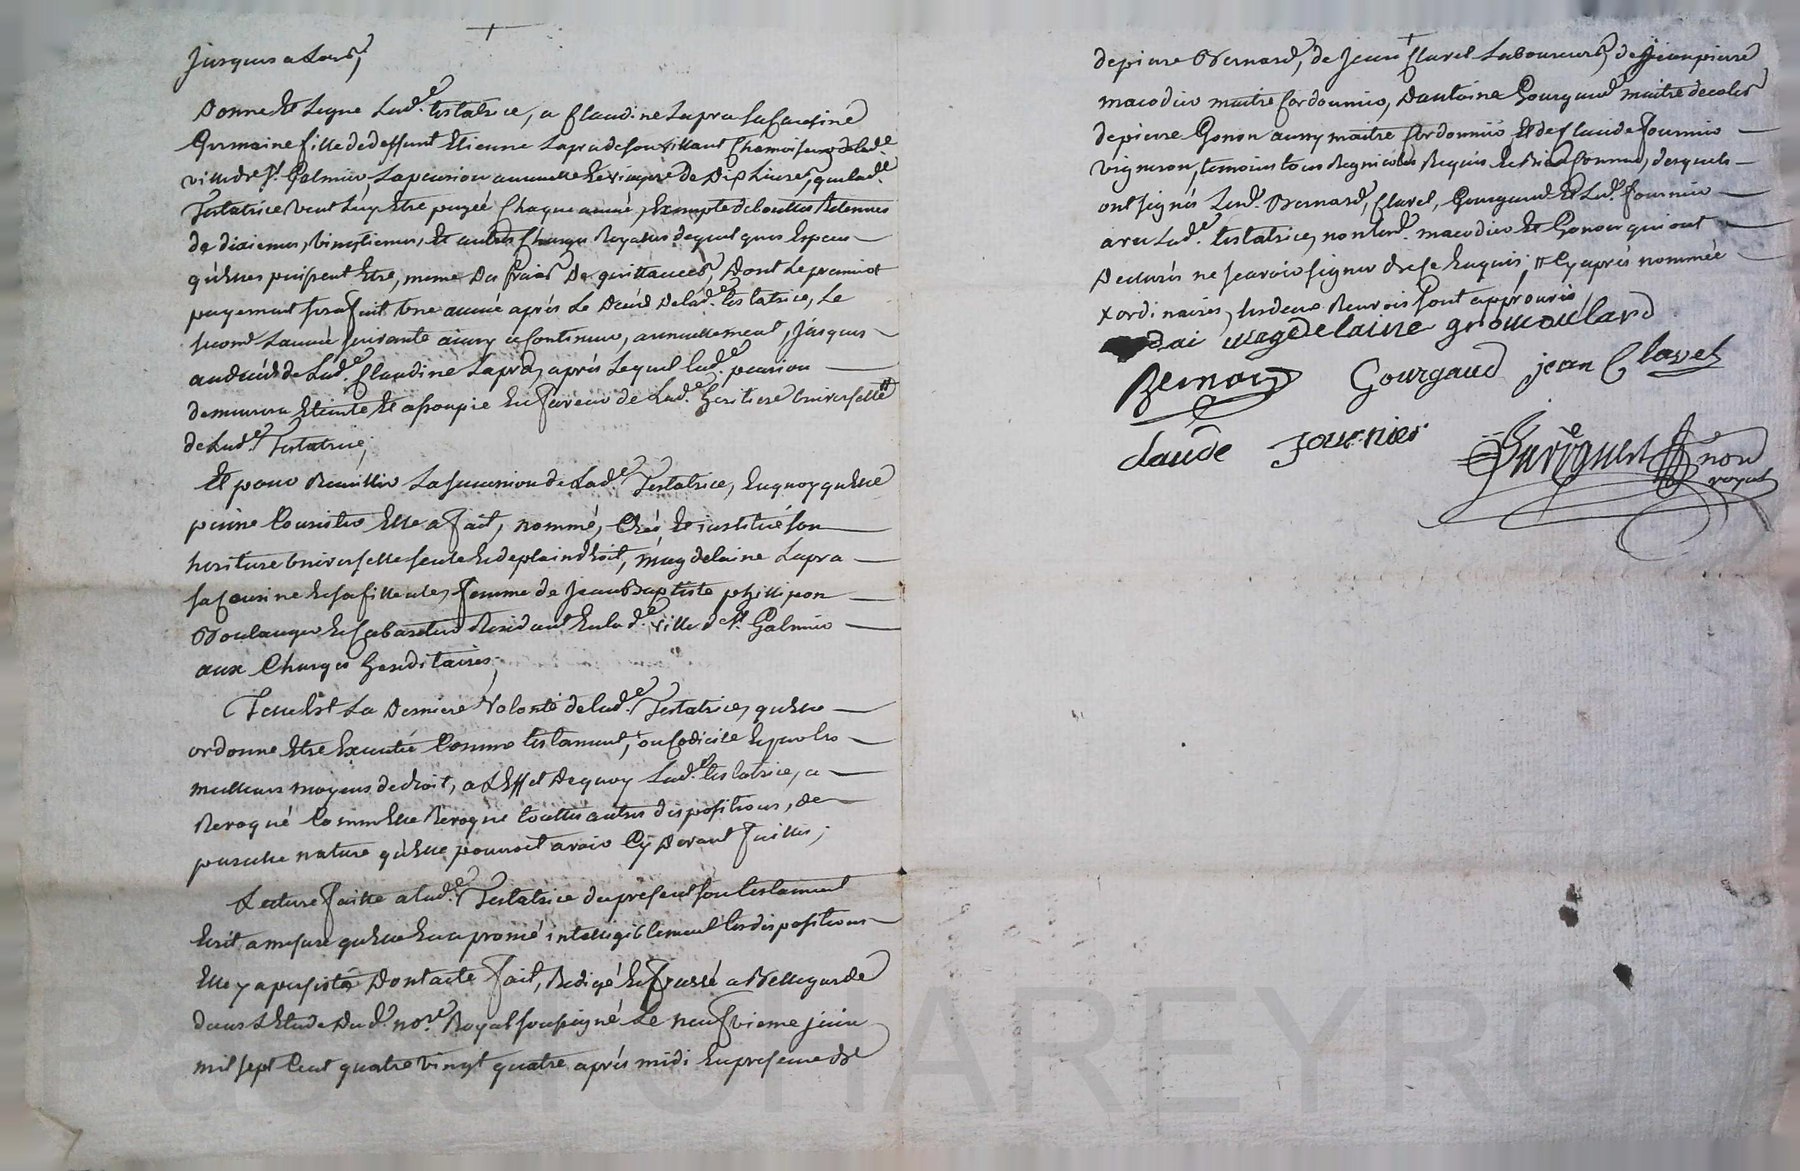 jusques alors,
Donne et Legue Lad.e testatrice, a Claudine Lapra sa Cousine
Germaine fille de deffunt Etienne Lapra de son vivant Chamoiseur de lad.e
ville de S.t Galmier, La pension annuelle et viagere de Dix Livres, que lad.e
Testatrice veut Luy Etre payée Chaque année, Exempte de touttes Retenues
de dixiemes, vingtiemes, et autres Charges Royalles de quelques Especes
qu'elles puissent Etre, meme Des fraix De quittances, Dont Le premier
payement sera fait Une année après Le Décéd De lad.e testatrice, Le
second L'année suivante ainsy a Continuer, annuellement, jusques
au décéd de Lad.e Claudine Lapra, après Lequel lad.e pension
demeurera Eteinte et assoupie En faveur de Lad.e heritiere Universelle
de Lad.e Testatrice;
Et pour Recuillir La succession de Lad.e Testatrice, En quoy qu'elle
puisse Consister Elle a fait, nommé, Créé et institué son
heritiere Universelle seule et de plain droit, Magdelaine Lapra
sa Cousine et sa filleule, femme de Jean Baptiste phillipon
Boulanger et Cabaretier Residant En lad.e ville de S.t Galmier
aux Charges hereditaires;
Telle Est La Derniere Volonté de lad.e Testatrice, qu'elle
ordonne Etre Executée Comme testament, ou Codicile et par les
meilleurs moyens de droit, a L'Effet De quoy Lad.e testatrice, a
Revoqué Comme Elle Revoque touttes autres dispositions, de
pareille nature qu'elle pourroit avoir Cy Devant faittes;
Lecture faitte a lad.e Testatrice du present son testament
Ecrit a mesure qu'elle En a prononcé intelligiblement les dispositions
Elle y a persisté Dont acte fait, Redigé et passé a Bellegarde
dans L'Etude Du d. no.re Royal soussigné Le neufvieme juin
mil sept Cent quatre vingt quatre après midi En presence de
de pierre Bernard, de Jean Clavel Laboureurs, de Jean pierre
maitre Cordonnier, D'antoine Gourgaud maitre d'ecole
de pierre Gonon aussy maitre Cordonnier et de Claude fournier
vigneron, temoins tous Regnicoles Requis et Bien Connus, desquels
ont signés Lesd. Bernard, Clavel, Gourgaud et Led. fournier
avec Lad.e testatrice, non Lesd. et Gonon qui ont
Declarés ne sçavoir signer de ce Enquis, // Cy après nommée
x ordinaires, Les deux Renvois sont approuvés
magdelaine gromoulard
Bernard Gourgaud jean Clavel
claude fournier
nore
royal